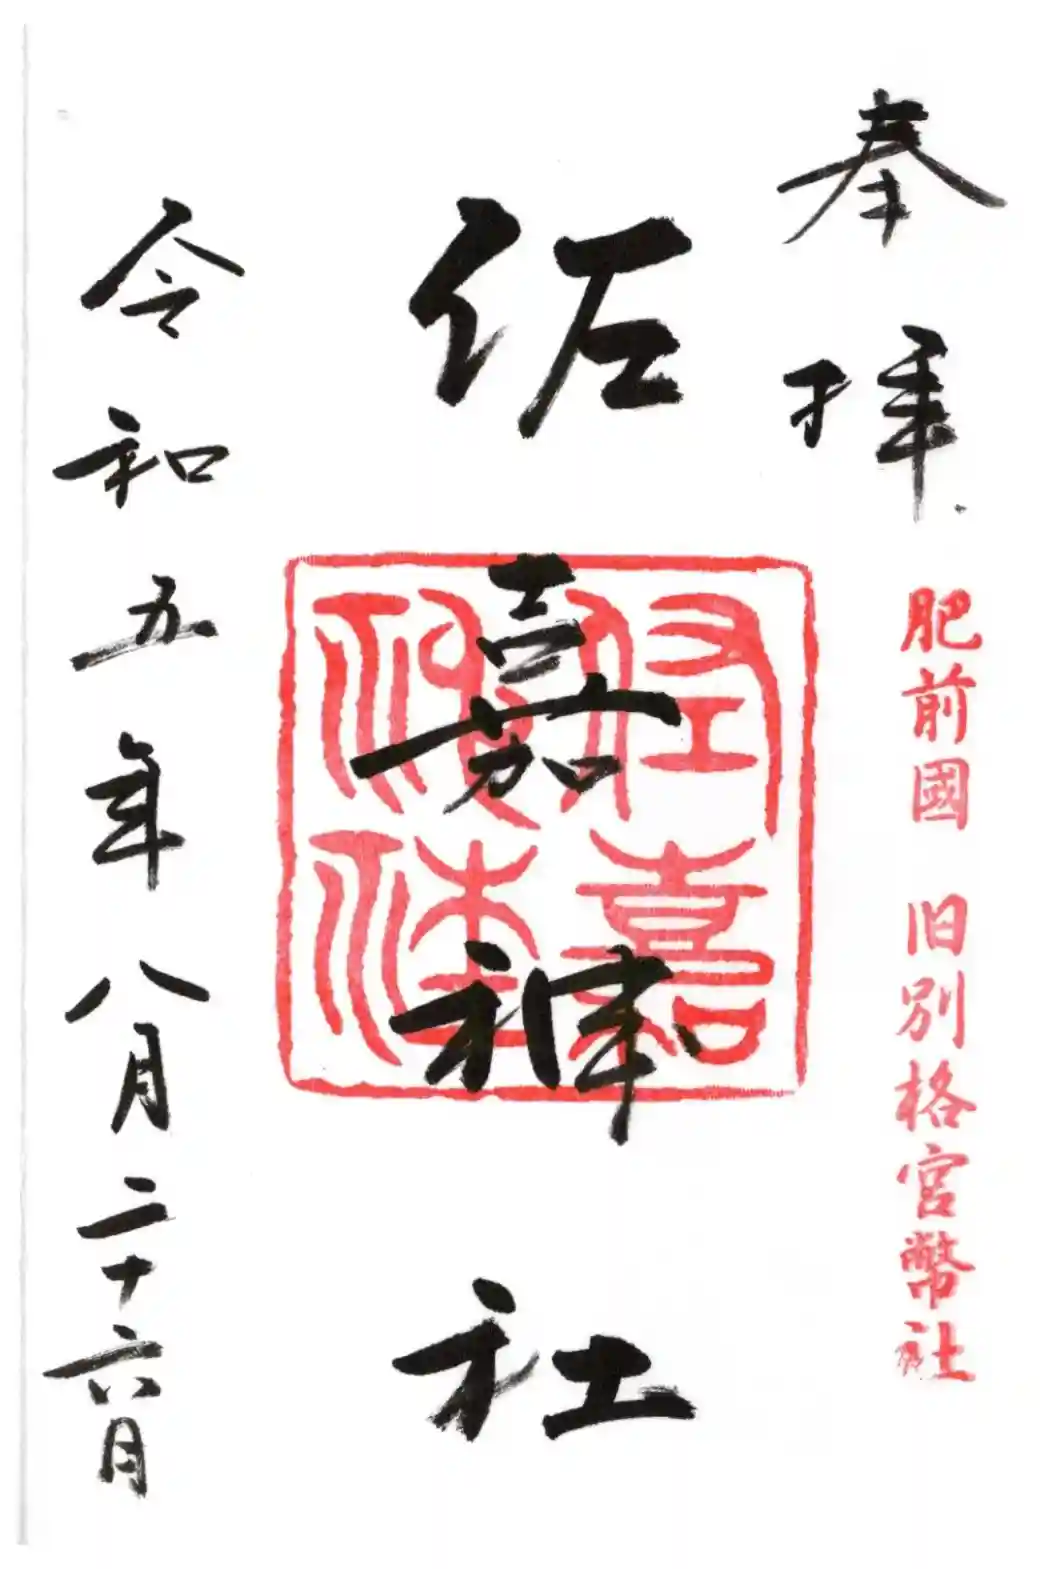 奉拝
肥前國 旧別格官幣社
佐嘉神社
佐嘉神社
令和五年八月二十六日